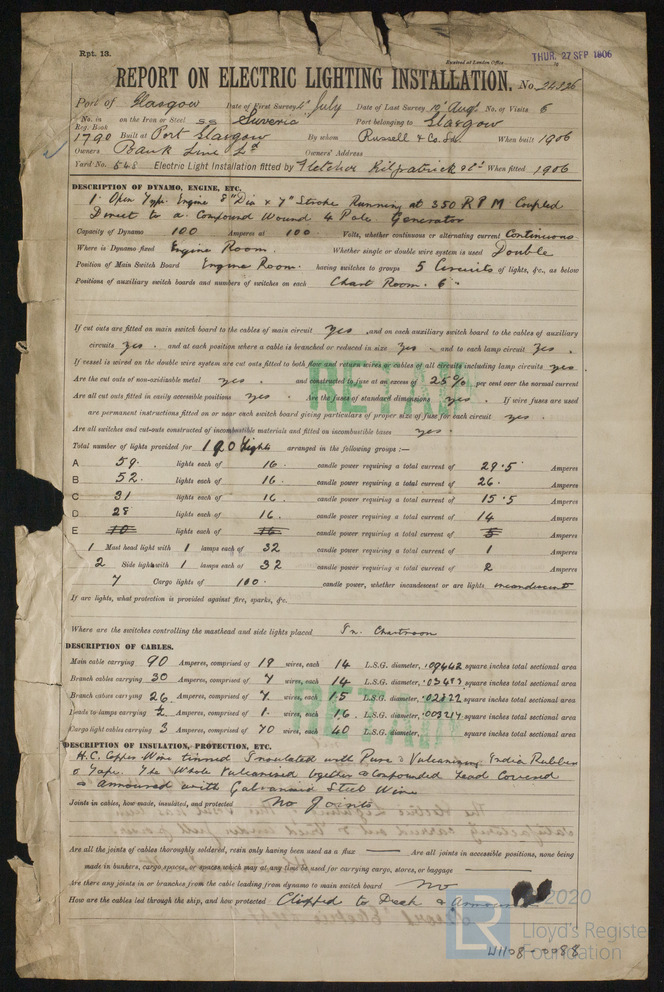 Rpt. 13.
Received at London Office
THUR. 27 SEP 1906
REPORT ON ELECTRIC LIGHTING INSTALLATION. No.
Port of Glasgow Date of First Survey July Date of Last Survey Aug No. of Visits 6
No. in Reg. Book on the Iron or Steel SS Suveric Port belonging to Glasgow
1790 Built at Port Glasgow By whom Russell & Co. Ld. When built 1906
Owners Bank Line Ld Owners' Address
Yard No. 548 Electric Light Installation fitted by Fletcher Kilpatrick & Co When fitted 1906
DESCRIPTION OF DYNAMO, ENGINE, ETC.
1. Open Type Engine 8" Dia x 7" Stroke Running at 350 RPM Coupled
Direct to a Compound Wound 4 Pole Generator
Capacity of Dynamo 100 Amperes at 100 Volts, whether continuous or alternating current Continuous
Where is Dynamo fixed Engine Room Whether single or double wire system is used Double
Position of Main Switch Board Engine Room having switches to groups 5 Circuits of lights, &c., as below
Positions of auxiliary switch boards and numbers of switches on each Chart Room. 6
If cut outs are fitted on main switch board to the cables of main circuit yes and on each auxiliary switch board to the cables of auxiliary
circuits yes and at each position where a cable is branched or reduced in size yes and to each lamp circuit yes
If vessel is wired on the double wire system are cut outs fitted to both flow and return wires or cables of all circuits including lamp circuits yes
Are the cut outs of non-oxidizable metal yes and constructed to fuse at an excess of 25% per cent over the normal current
Are all cut outs fitted in easily accessible positions yes Are the fuses of standard dimensions yes If wire fuses are used
are permanent instructions fitted on or near each switch board giving particulars of proper size of fuse for each circuit yes
Are all switches and cut-outs constructed of incombustible materials and fitted on incombustible bases yes
RETAIN
Total number of lights provided for 190 Lights arranged in the following groups :—
A 59 lights each of 16 candle power requiring a total current of 29.5 Amperes
B 52 lights each of 16 candle power requiring a total current of 26 Amperes
C 31 lights each of 16 candle power requiring a total current of 15.5 Amperes
D 28 lights each of 16 candle power requiring a total current of 14 Amperes
E 10 lights each of 16 candle power requiring a total current of 5 Amperes
1 Mast head light with 1 lamps each of 32 candle power requiring a total current of 1 Amperes
2 Side light with 1 lamps each of 32 candle power requiring a total current of 2 Amperes
7 Cargo lights of 100 candle power, whether incandescent or arc lights incandescent
If arc lights, what protection is provided against fire, sparks, &c.
Where are the switches controlling the masthead and side lights placed In Chartroom
DESCRIPTION OF CABLES.
Main cable carrying 90 Amperes, comprised of 19 wires, each 14 L.S.G. diameter, .09442 square inches total sectional area
Branch cables carrying 30 Amperes, comprised of 7 wires, each 14 L.S.G. diameter, square inches total sectional area
Branch cables carrying 26 Amperes, comprised of 7 wires, each 15 L.S.G. diameter, square inches total sectional area
Leads to lamps carrying ½ Amperes, comprised of 1 wires, each 16 L.S.G. diameter, .003217 square inches total sectional area
Cargo light cables carrying 3 Amperes, comprised of 70 wires, each 40 L.S.G. diameter, square inches total sectional area
RETAIN
DESCRIPTION OF INSULATION, PROTECTION, ETC.
H.C. Copper Wire tinned Insulated with Pure & Vulcanizing India Rubber
& Tape. The Whole Vulcanised together & Compounded Lead Covered
& armoured with Galvanised Steel Wire
Joints in cables, how made, insulated, and protected No Joints
Are all the joints of cables thoroughly soldered, resin only having been used as a flux — Are all joints in accessible positions, none being
made in bunkers, cargo spaces, or spaces which may at any time be used for carrying cargo, stores, or baggage —
Are there any joints in or branches from the cable leading from dynamo to main switch board No
How are the cables led through the ship, and how protected Clipped to Deck &
© 2020
LR Lloyd's Register
Foundation
W1108-0088